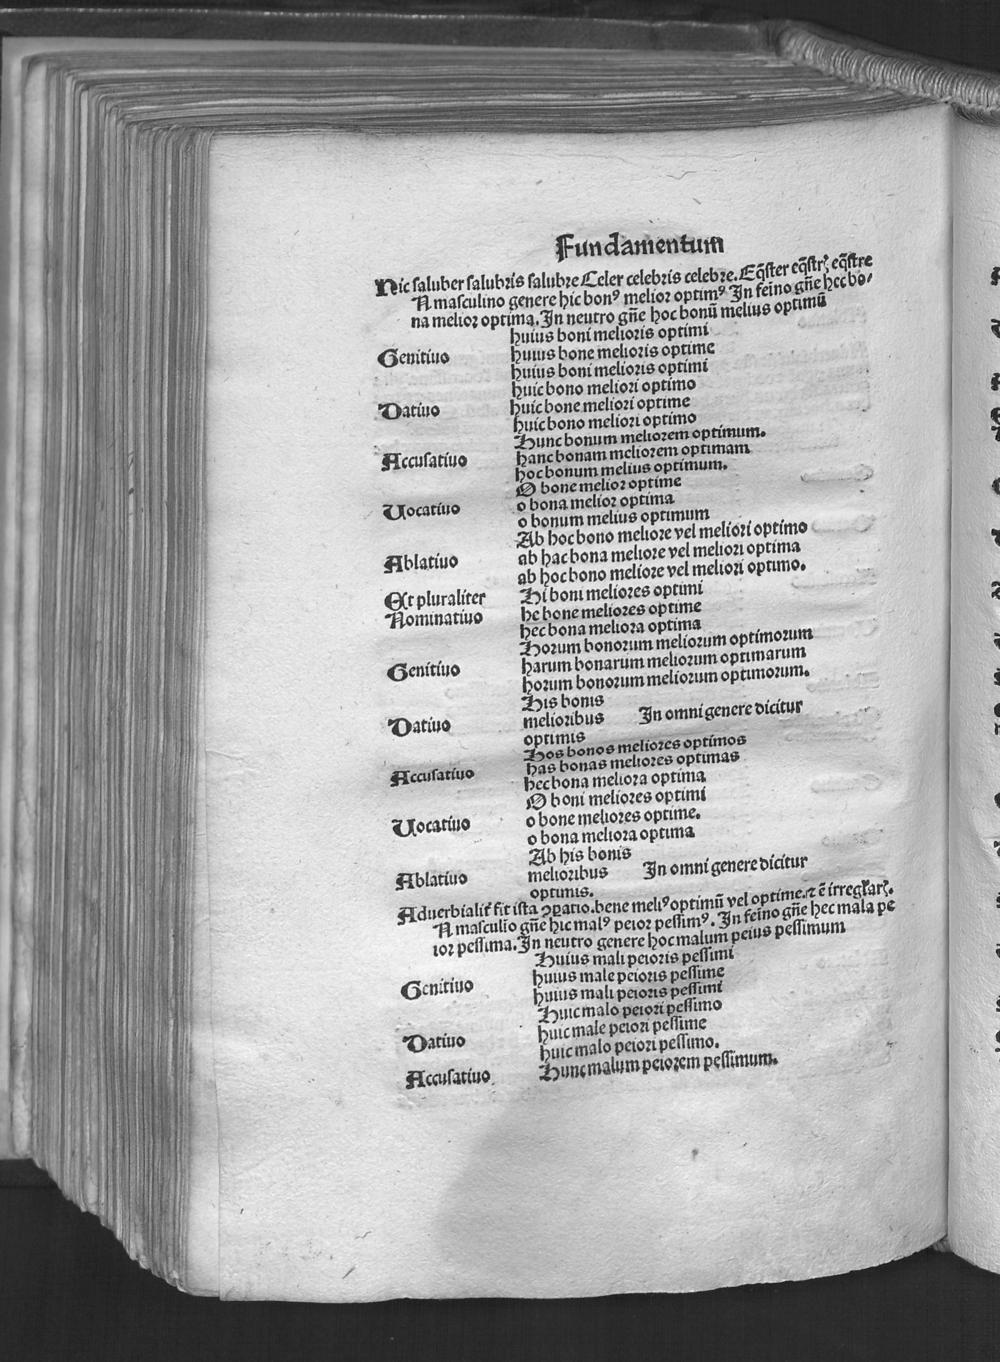 Fundamentum
Hic saluber salubris salubre Celer celebris celebre. Eq̃ster eq̃strꝭ eq̃stre
A masculino genere hic bonꝰ melior optimꝰ In fei̅no gn̅e hec bo⸗
na melior optima. In neutro gn̅e hoc bonu̅ melius optimu̅
huius boni melioris optimi
Genitiuo huius bone melioris optime
huius boni melioris optimi
huic bono meliori optimo
Datiuo huic bone meliori optime
huic bono meliori optimo
Hunc bonum meliorem optimum.
Accusatiuo hanc bonam meliorem optimam
hoc bonum melius optimum.
O bone melior optime
Uocatiuo o bona melior optima
o bonum melius optimum
Ab hoc bono meliore vel meliori optimo
Ablatiuo ab hac bona meliore vel meliori optima
ab hoc bono meliore vel meliori optimo.
Et pluraliter Hi boni meliores optimi
Nominatiuo he bone meliores optime
hec bona meliora optima
Horum bonorum meliorum optimorum
Genitiuo harum bonarum meliorum optimarum
horum bonorum meliorum optimorum.
His bonis
Datiuo melioribus In omni genere dicitur
optimis
Hos bonos meliores optimos
Accusatiuo has bonas meliores optimas
hec bona meliora optima
O boni meliores optimi
Uocatiuo o bone meliores optime.
o bona meliora optima
Ab his bonis
Ablatiuo melioribus In omni genere dicitur
optimis.
Aduerbialiť fit ista ꝯparatio. bene meliꝰ optimu̅ vel optime. ⁊ e̅ irregl̃arꝭ.
A masculi̅o gn̅e hic malꝰ peior pessimꝰ. In fei̅no gn̅e hec mala pe
ior pessima. In neutro genere hoc malum peius pessimum
Huius mali peioris pessimi
Genitiuo huius male peioris pessime
huius mali peioris pessimi
Huic malo peiori pessimo
Datiuo huic male peiori pessime
huic malo peiori pessimo.
Accusatiuo Hunc malum peiorem pessimum.